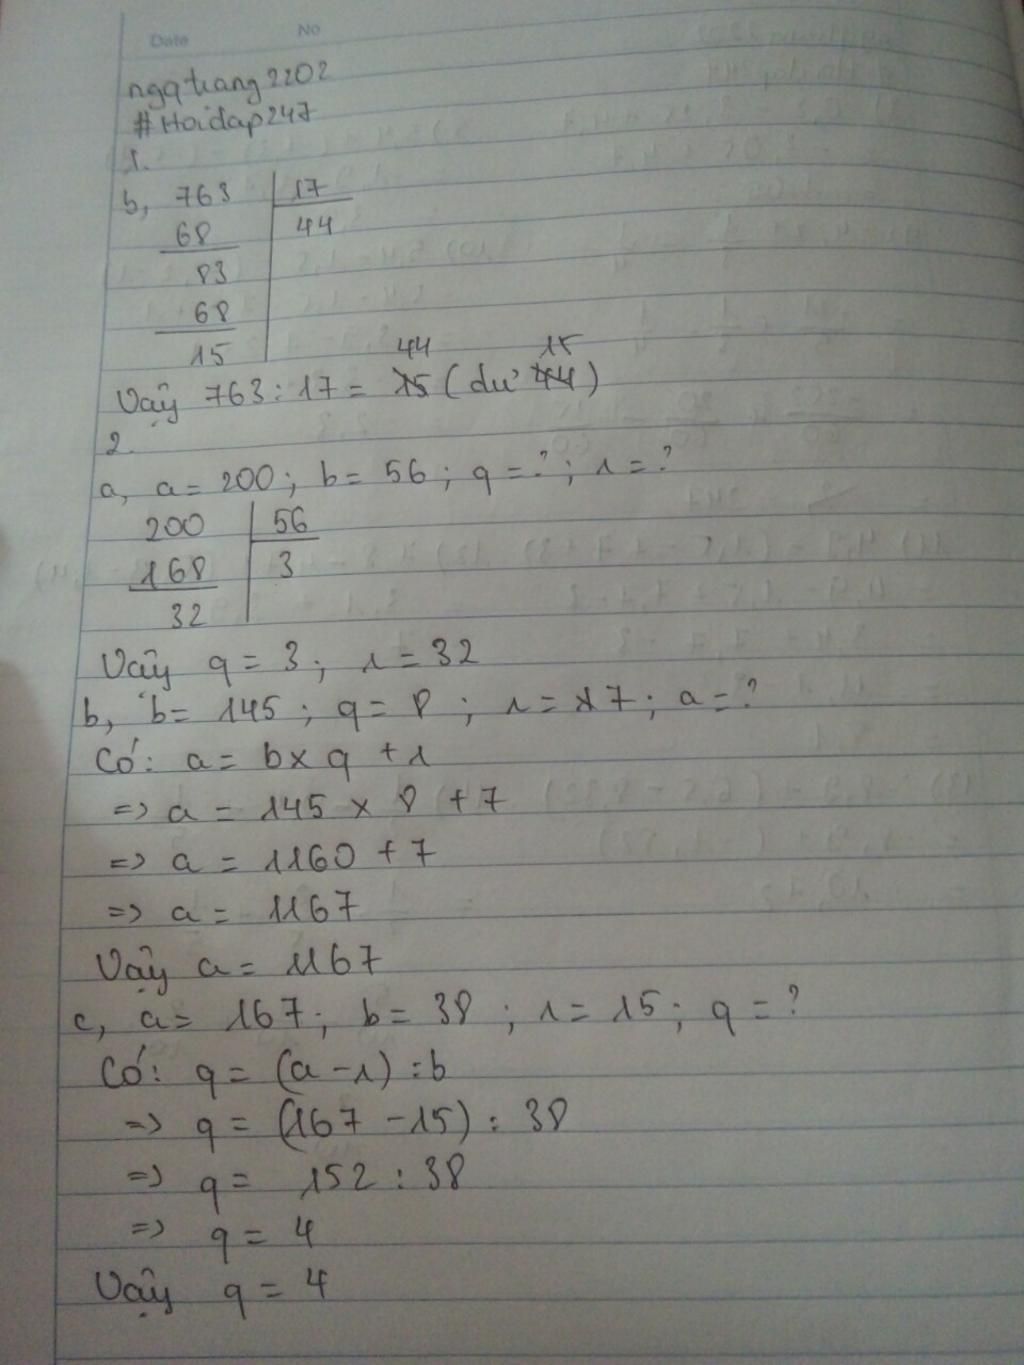 Date No
ngqtrang2202
#Hoidap247
1.
b, 763 17
68 44
83
68
15
44 15
Vậy 763 : 17 = 15 (dư 44)
2.
a, a = 200 ; b = 56 ; q = ? ; r = ?
200 56
168 3
32
Vậy q = 3 ; r = 32
b, b = 145 ; q = 8 ; r = 17 ; a = ?
Có: a = b x q + r
=> a = 145 x 8 + 7
=> a = 1160 + 7
=> a = 1167
Vậy a = 1167
c, a = 167 ; b = 38 ; r = 15 ; q = ?
Có: q = (a - r) : b
=> q = (167 - 15) : 38
=> q = 152 : 38
=> q = 4
Vậy q = 4